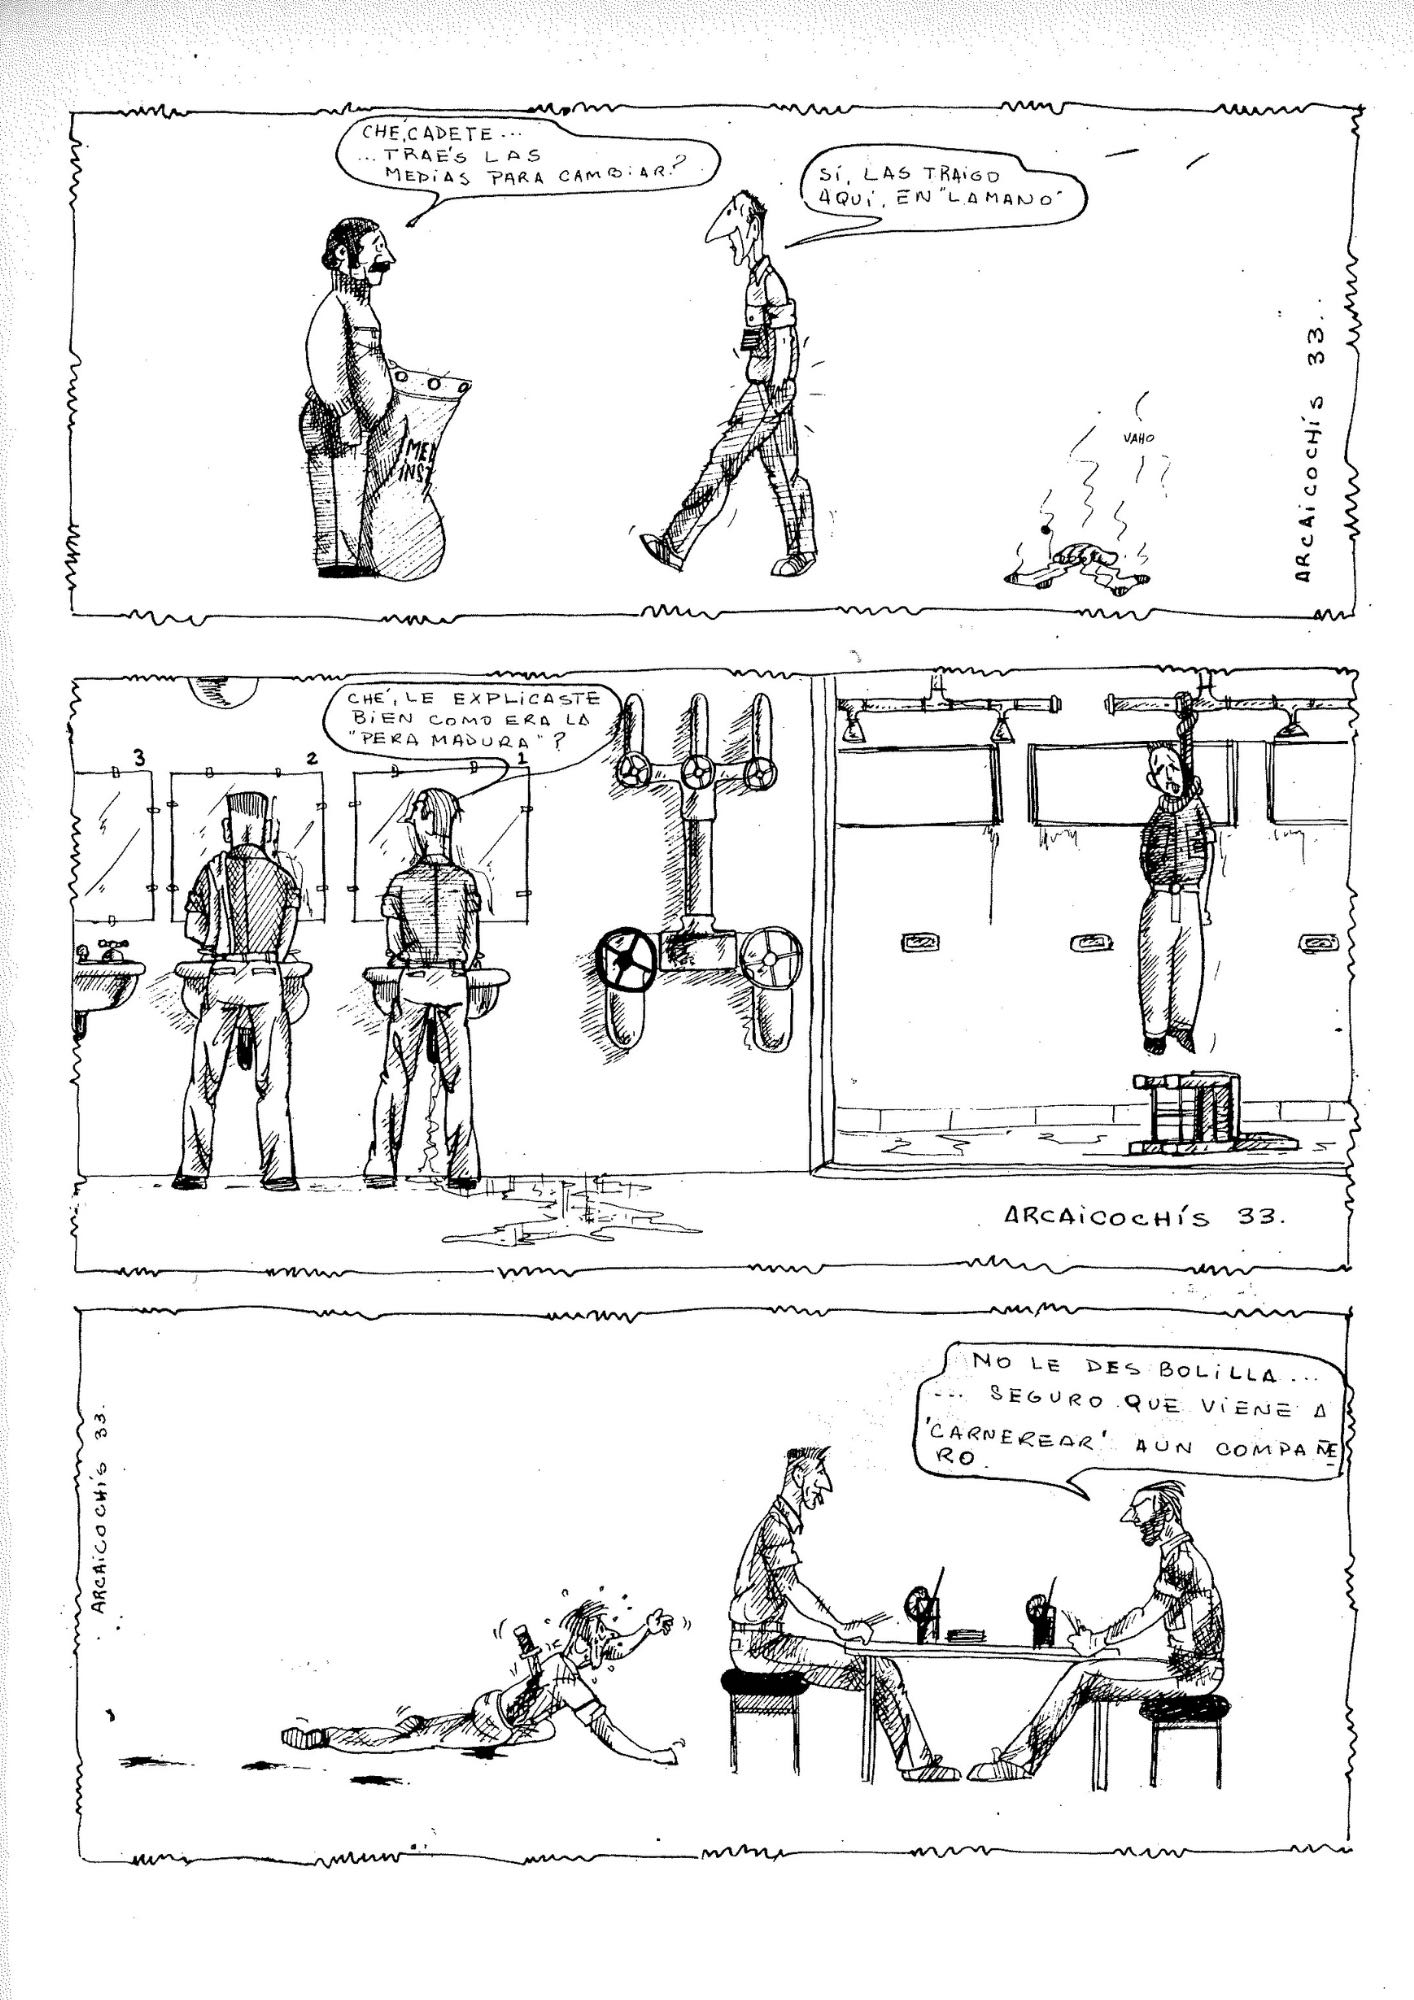 CHÉ, CADETE...
... TRAÉS LAS
MEDIAS PARA CAMBIAR?
SÍ, LAS TRAIGO
AQUÍ, EN "LA MANO"
VAHO
ARCAICOCHÍS 33.
CHÉ, LE EXPLICASTE
BIEN COMO ERA LA
"PERA MADURA"?
3
2
1
ARCAICOCHÍS 33.
NO LE DES BOLILLA....
... SEGURO QUE VIENE A
'CARNEREAR' A UN COMPAÑE
RO.
ARCAICOCHÍS 33.